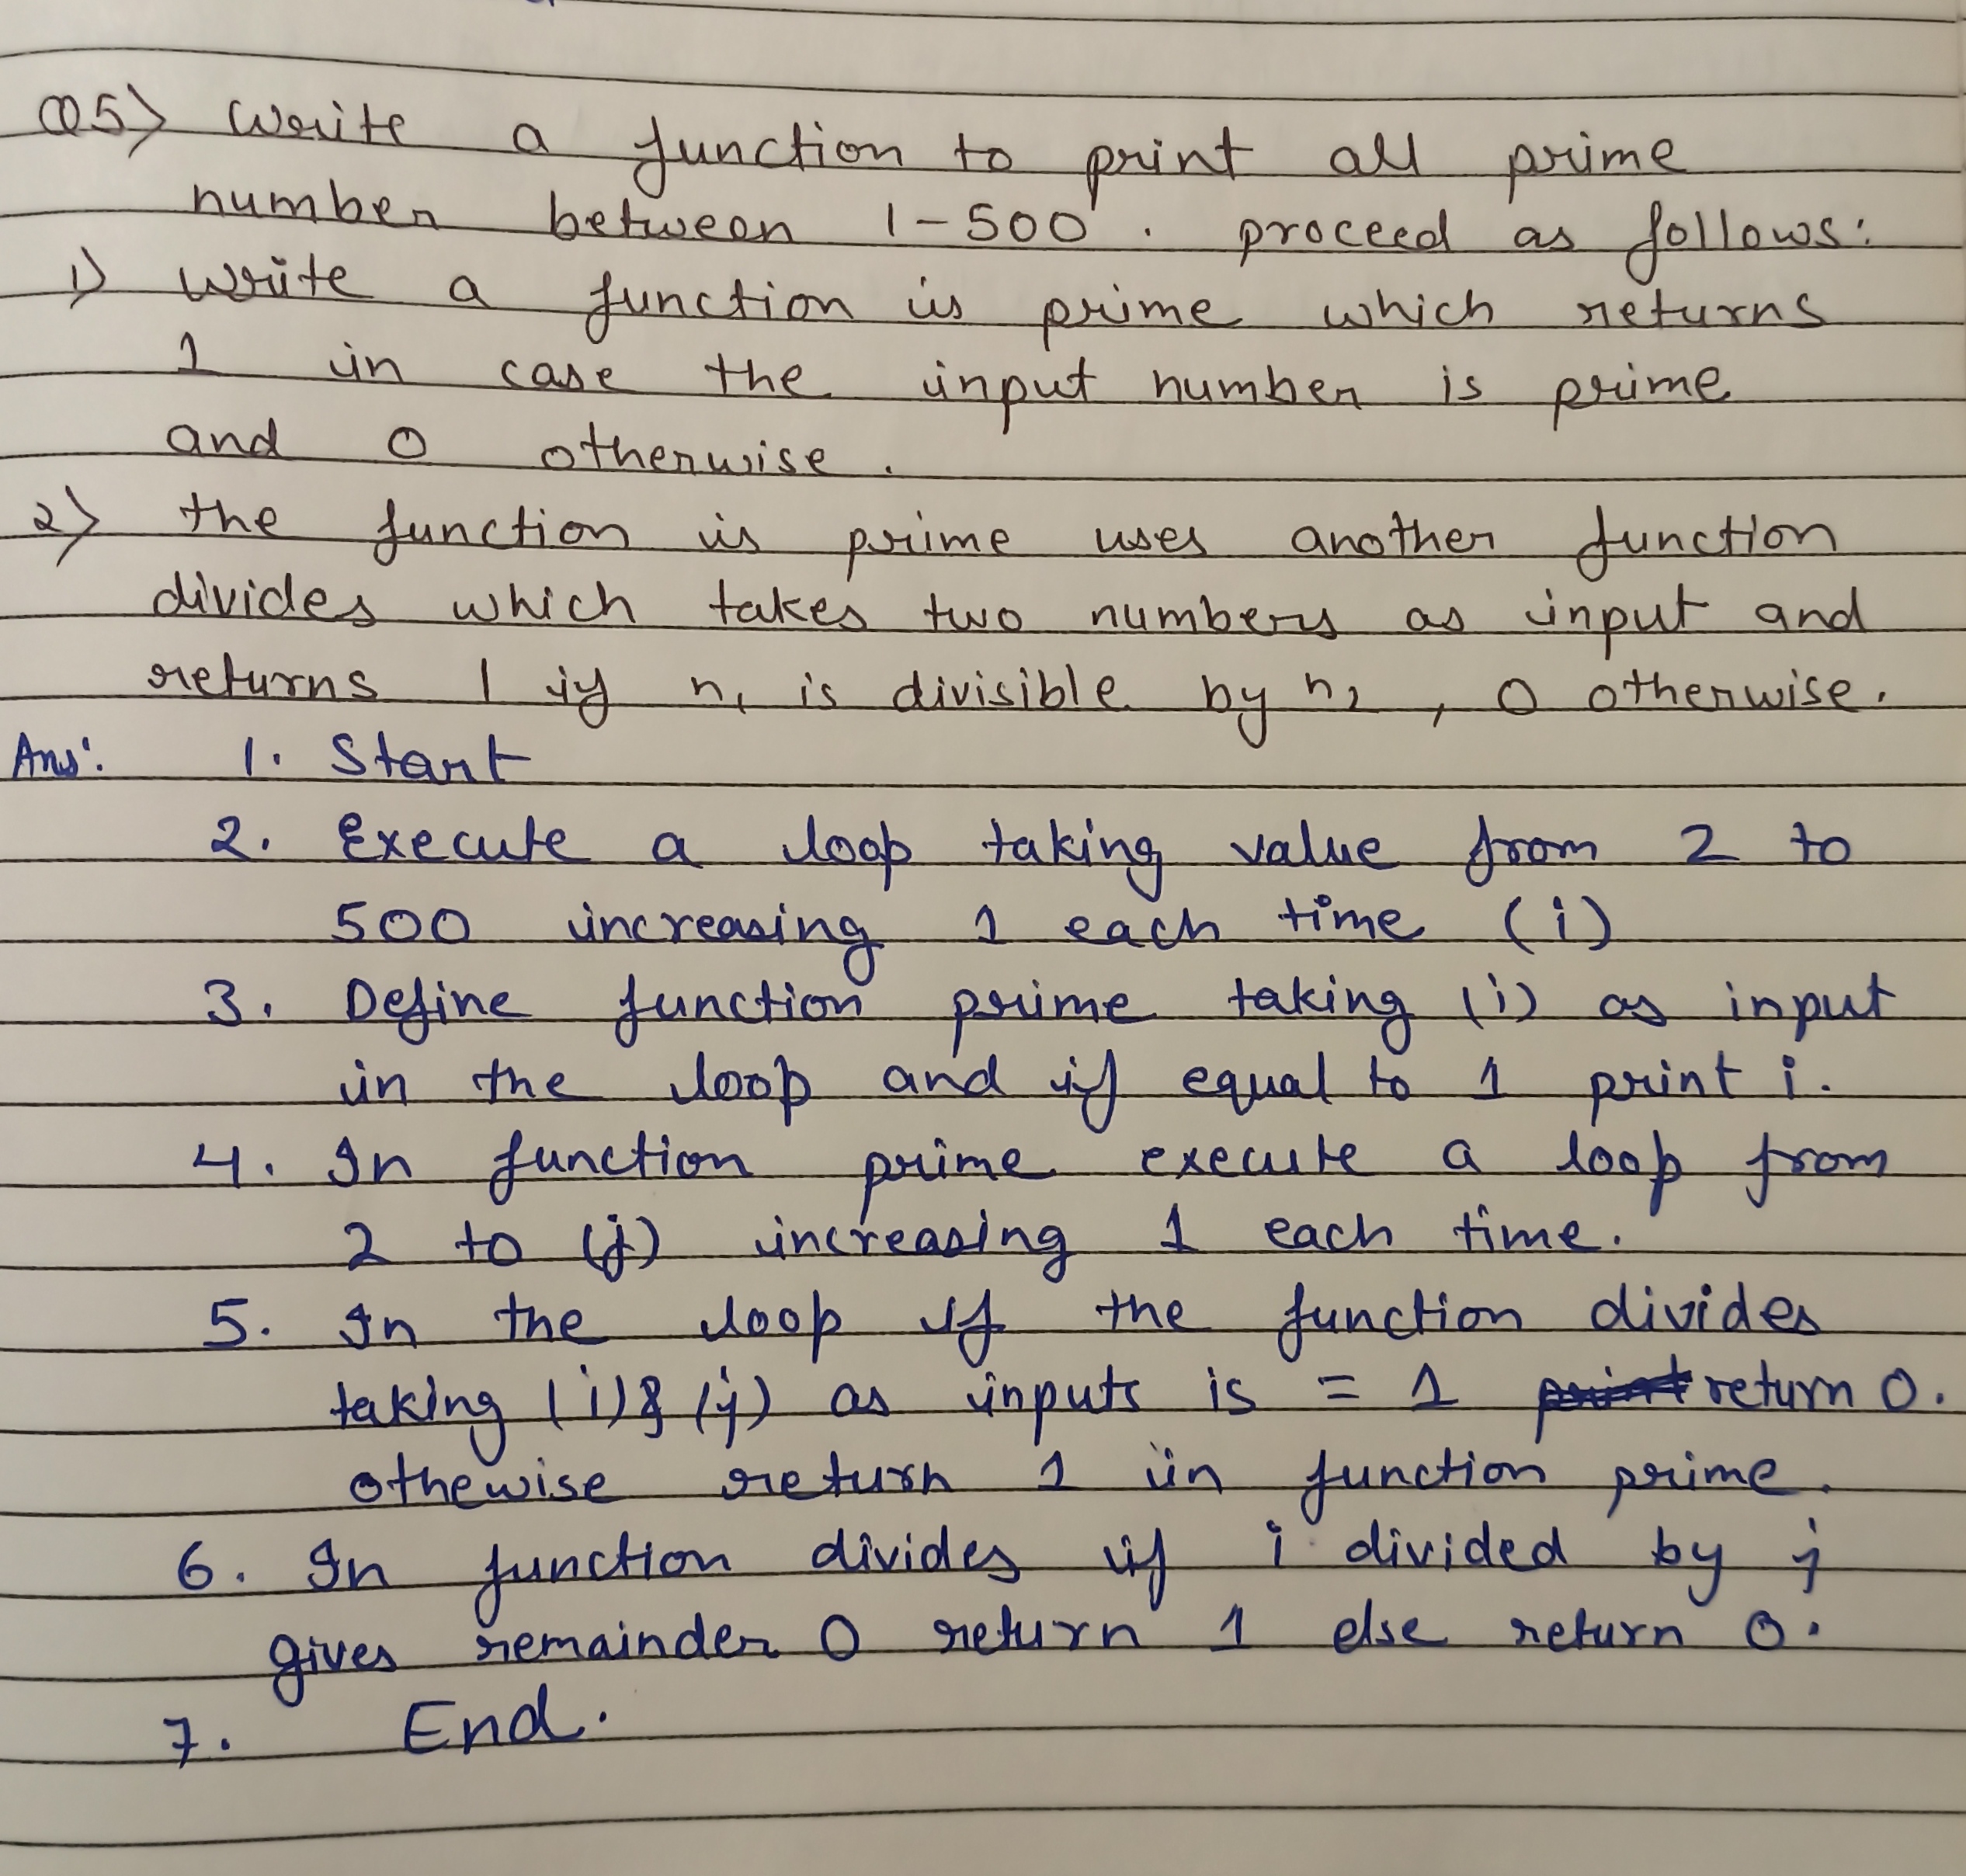 Q5> Write a function to print all prime
number between 1-500. proceed as follows:
1) write a function is prime which returns
1 in case the input number is prime
and 0 otherwise.
2) the function is prime uses another function
divides which takes two numbers as input and
returns 1 if n1 is divisible by n2, 0 otherwise.
Ans: 1. Start
2. Execute a loop taking value from 2 to
500 increasing 1 each time (i)
3. Define function prime taking (i) as input
in the loop and if equal to 1 print i.
4. In function prime execute a loop from
2 to (j) increasing 1 each time.
5. In the loop if the function divides
taking (i) & (j) as inputs is = 1 print return 0.
othewise return 1 in function prime.
6. In function divides if i divided by j
gives remainder 0 return 1 else return 0.
7. End.